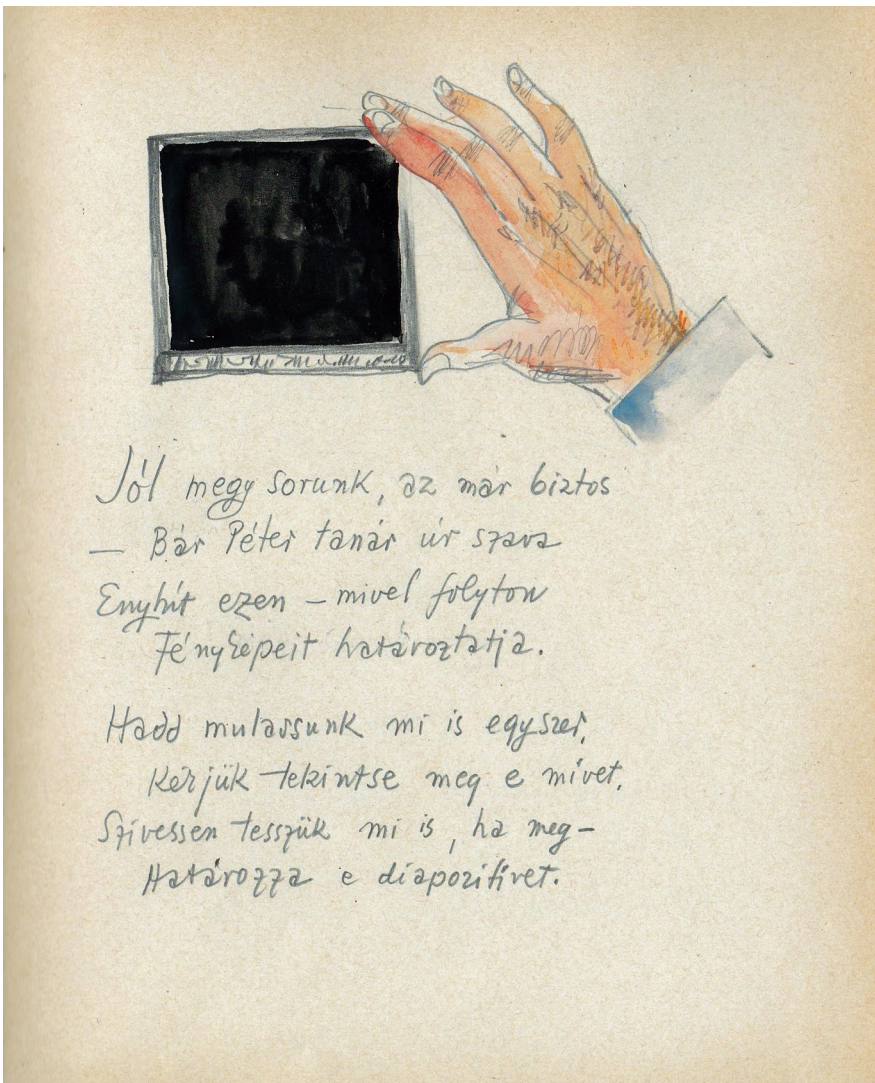 Jól megy sorunk, az már biztos
— Bár Péter tanár úr szava
Enyhít ezen – mivel folyton
Fényképeit határoztatja.
Hadd mulassunk mi is egyszer,
Kérjük tekintse meg e mívet.
Szívessen tesszük mi is, ha meg-
Határozza e diapozitívet.